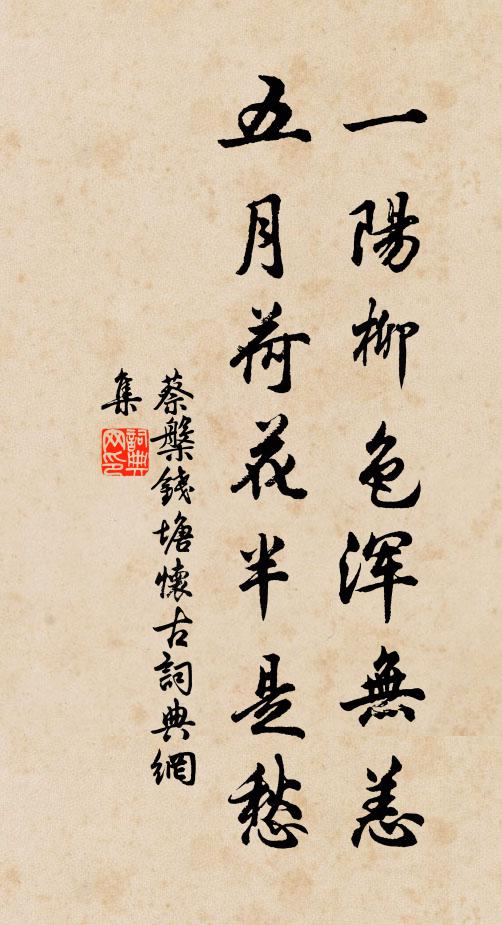 一陽柳色浑無恙
五月荷花半是愁
蔡槃錢塘懷古詞典網
集
詞典
网印